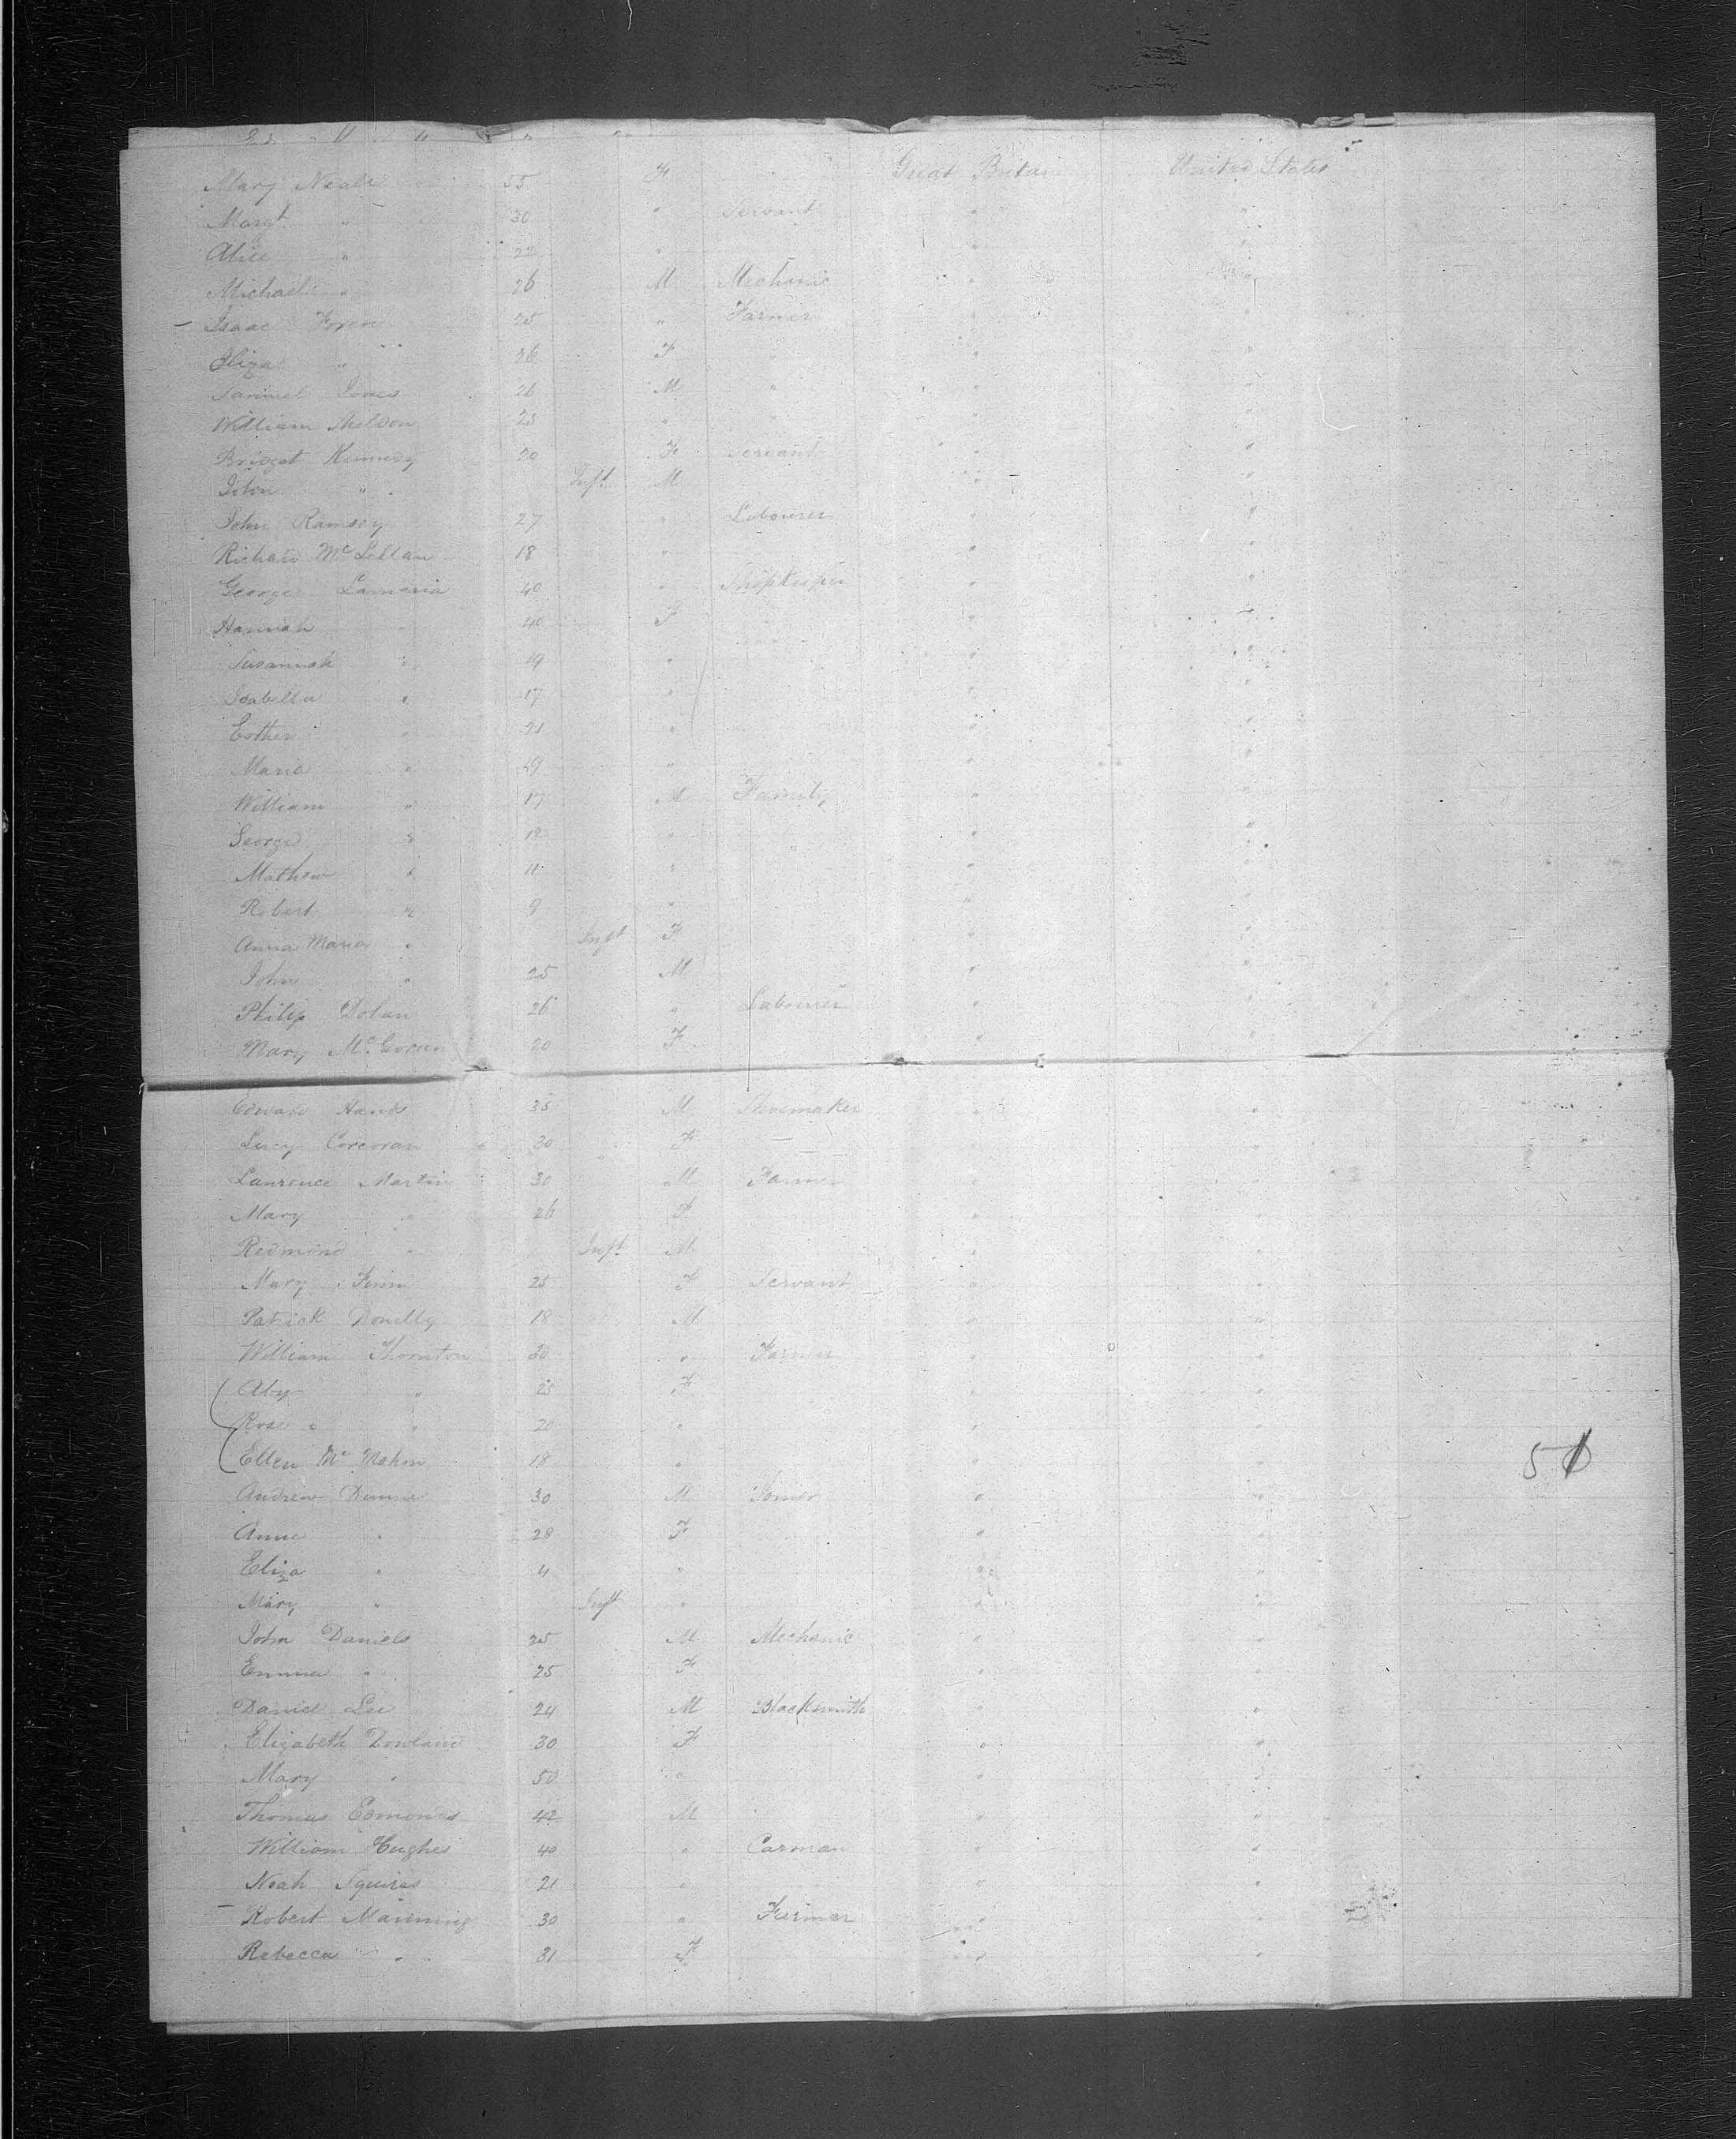 Mary Neale 55 F Great Britain United States
Margt " 30 " Servant " "
Alice " 22 " " "
Michael " 26 M Mechanic " "
Isaac 25 " Farmer " "
Eliza " 26 F " "
Samuel Jones 26 M " " "
William Sheldon 23 " " " "
Bridget Kennedy 20 F Servant " "
John " Inft M " "
John Ramsey 27 " Labourer " "
Richard McLellan 18 " " "
George 40 " Shopkeeper " "
Hannah " 40 F " "
Susannah " 19 " " "
Isabella " 17 " " "
Esther " 21 " " "
Maria " 19 " " "
William " 17 M Family " "
George " 12 " " "
Mathew " 11 " " "
Robert " 9 " " "
Anna Maria " Inft F " "
John " 25 M " "
Philip Dolan 26 " Labourer " "
Mary 20 F " "
Edward Hands 35 M Shoemaker " "
Lucy Corcoran 30 F " "
Laurence Martin 30 M Farmer " "
Mary " 26 F " "
Redmond " Inft M " "
Mary Finn 25 F Servant " "
Patrick Donelly 18 M " "
William Thornton 30 " Farmer " "
Aby " 25 F " "
Rose " 20 " " "
Ellen Mc Mahon 18 " " "
Andrew Dunne 30 M " "
Anne " 28 F " "
Eliza " 4 " " "
Mary " Inft " " "
John Daniels 25 M Mechanic " "
Emma " 25 F " "
Daniel Lee 24 M Blacksmith " "
Elizabeth Dowland 30 F " "
Mary " 50 " " "
Thomas Edmonds 42 M " "
William Hughes 40 " Carman " "
Noah Squires 21 " " "
Robert Manning 30 " Farmer " "
Rebecca " 31 F " "